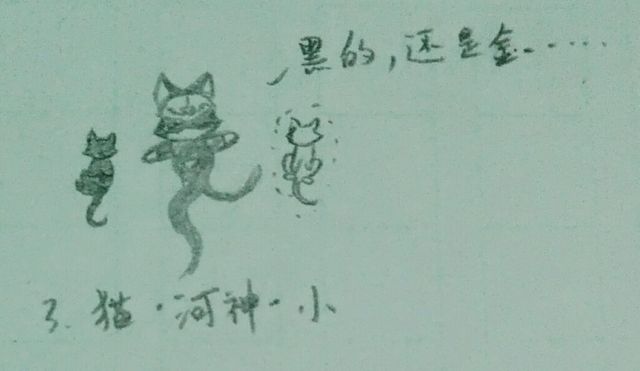 黑的,还是金……
3. 猫·河神·小